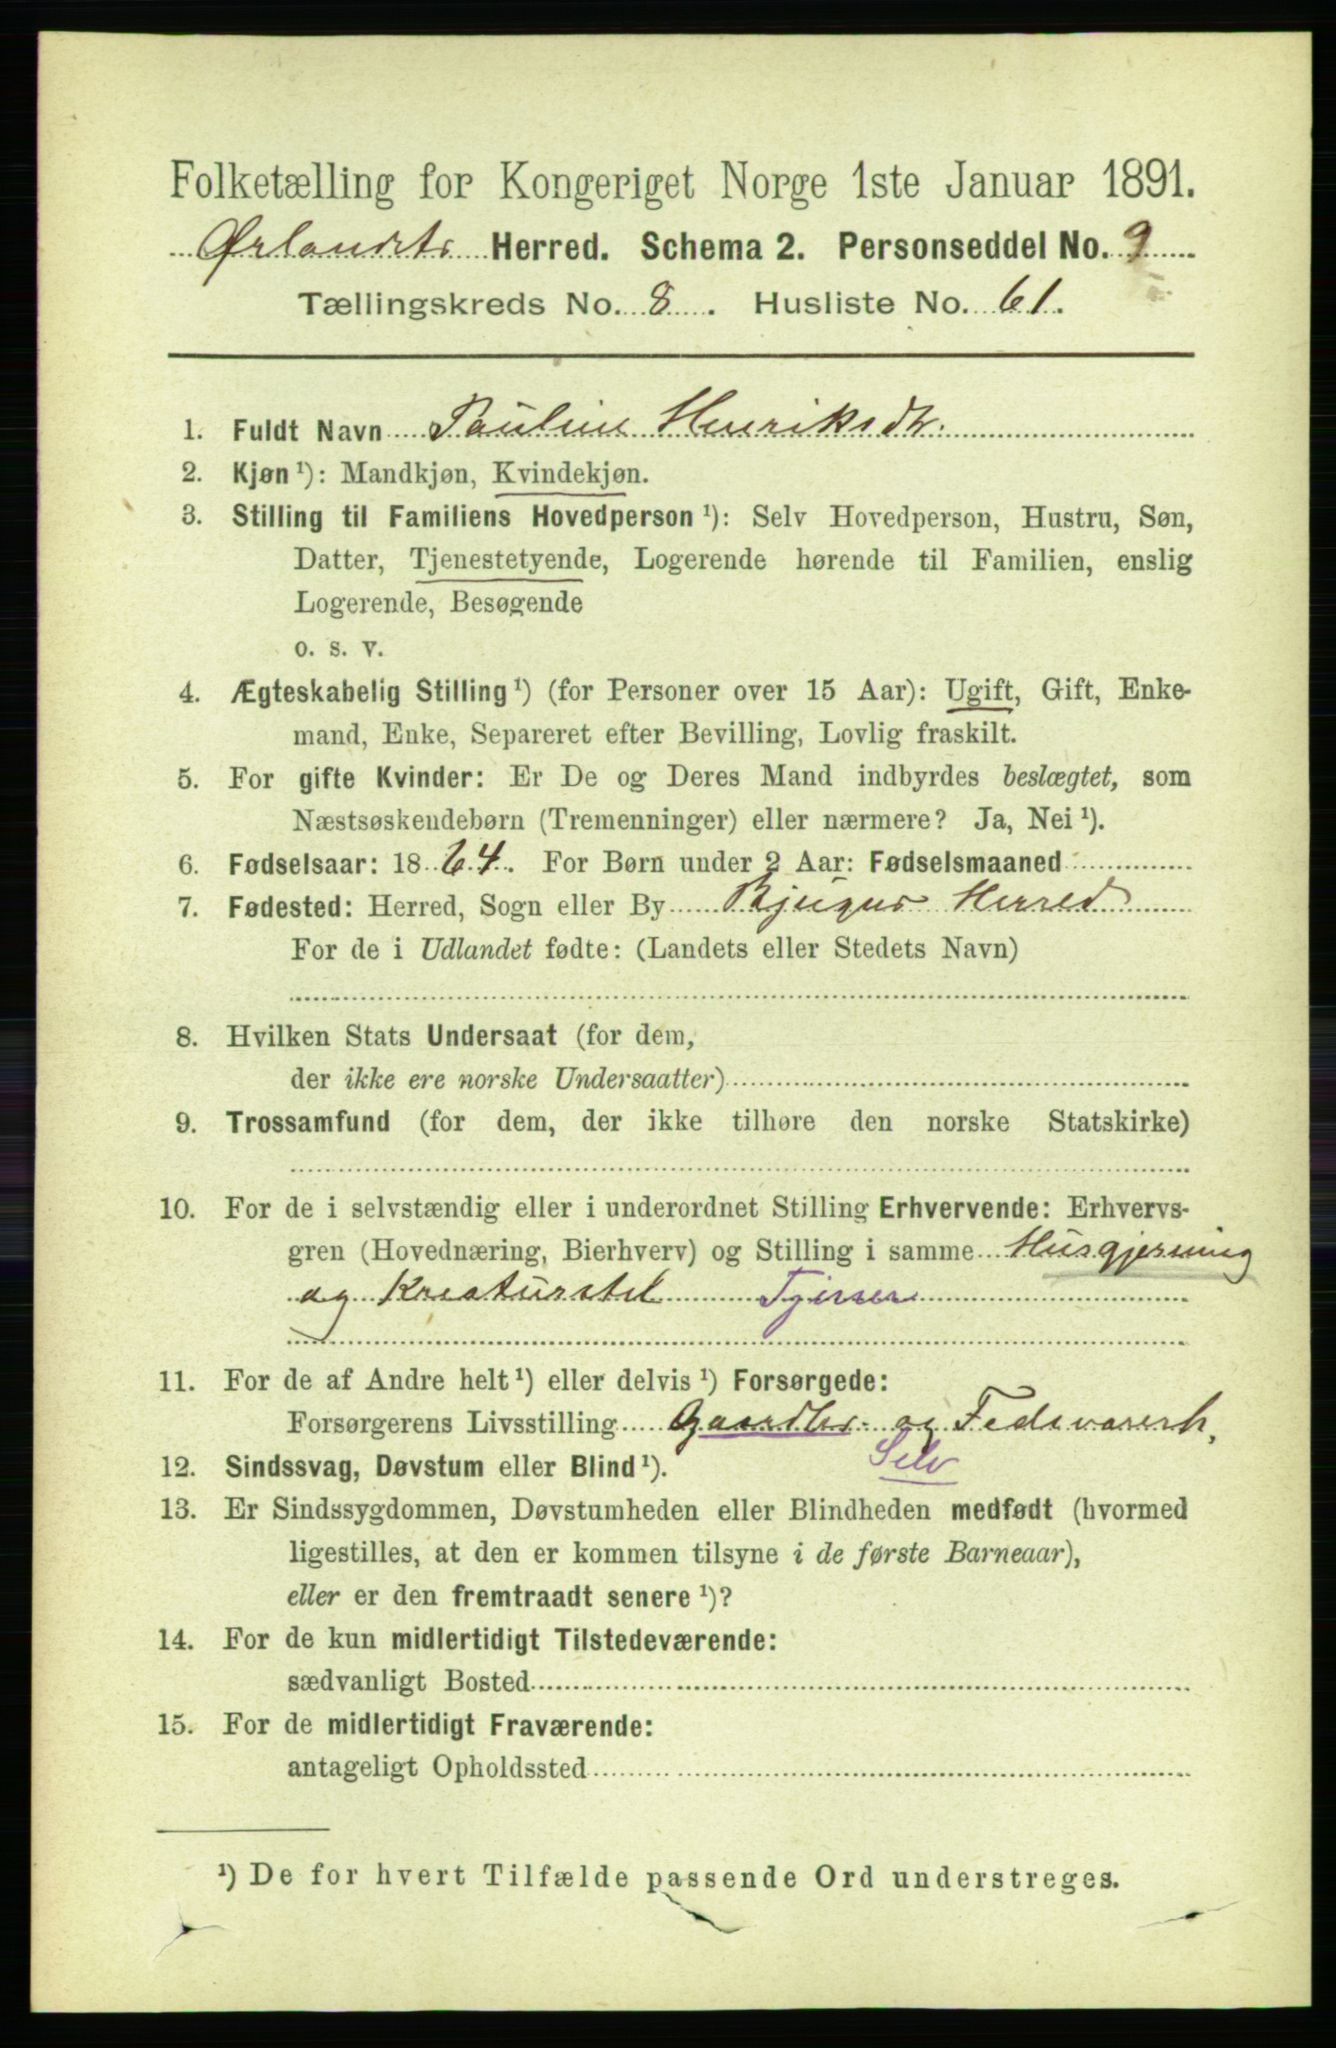 Folketælling for Kongeriget Norge 1ste Januar 1891.
Ørlandets Herred. Schema 2. Personseddel No. 9
Tællingskreds No. 8. Husliste No. 61.
1. Fuldt Navn Pauline Henriksdtr.
2. Kjøn ¹): Mandkjøn, Kvindekjøn.
3. Stilling til Familiens Hovedperson ¹): Selv Hovedperson, Hustru, Søn,
Datter, Tjenestetyende, Logerende hørende til Familien, enslig
Logerende, Besøgende
o. s. v.
4. Ægteskabelig Stilling ¹) (for Personer over 15 Aar): Ugift, Gift, Enke-
mand, Enke, Separeret efter Bevilling, Lovlig fraskilt.
5. For gifte Kvinder: Er De og Deres Mand indbyrdes beslægtet, som
Næstsøskendebørn (Tremenninger) eller nærmere? Ja, Nei ¹).
6. Fødselsaar: 1864. For Børn under 2 Aar: Fødselsmaaned
7. Fødested: Herred, Sogn eller By Bjugns Herred
For de i Udlandet fødte: (Landets eller Stedets Navn)
8. Hvilken Stats Undersaat (for dem,
der ikke ere norske Undersaatter)
9. Trossamfund (for dem, der ikke tilhøre den norske Statskirke)
10. For de i selvstændig eller i underordnet Stilling Erhvervende: Erhvervs-
gren (Hovednæring, Bierhverv) og Stilling i samme Husgjerning
og Kreaturstel Tjener
11. For de af Andre helt ¹) eller delvis ¹) Forsørgede:
Forsørgerens Livsstilling Gaardbr. og Fedevarerh.
Selv
12. Sindssvag, Døvstum eller Blind ¹).
13. Er Sindssygdommen, Døvstumheden eller Blindheden medfødt (hvormed
ligestilles, at den er kommen tilsyne i de første Barneaar),
eller er den fremtraadt senere ¹)?
14. For de kun midlertidigt Tilstedeværende:
sædvanligt Bosted
15. For de midlertidigt Fraværende:
antageligt Opholdssted
¹) De for hvert Tilfælde passende Ord understreges.